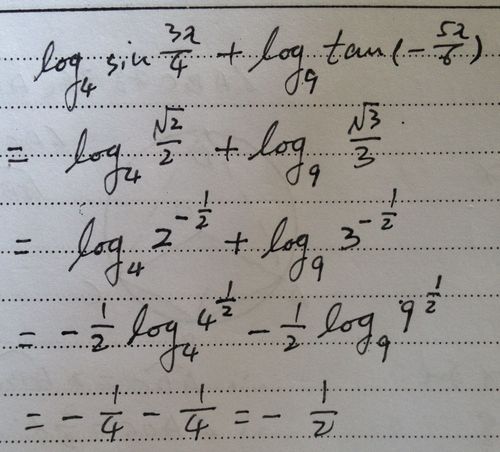 log₄ sin 3π/4 + log₉ tan(-5π/6)
= log₄ √2/2 + log₉ √3/3
= log₄ 2^(-1/2) + log₉ 3^(-1/2)
= -1/2 log₄ 4^(1/2) - 1/2 log₉ 9^(1/2)
= -1/4 - 1/4 = -1/2